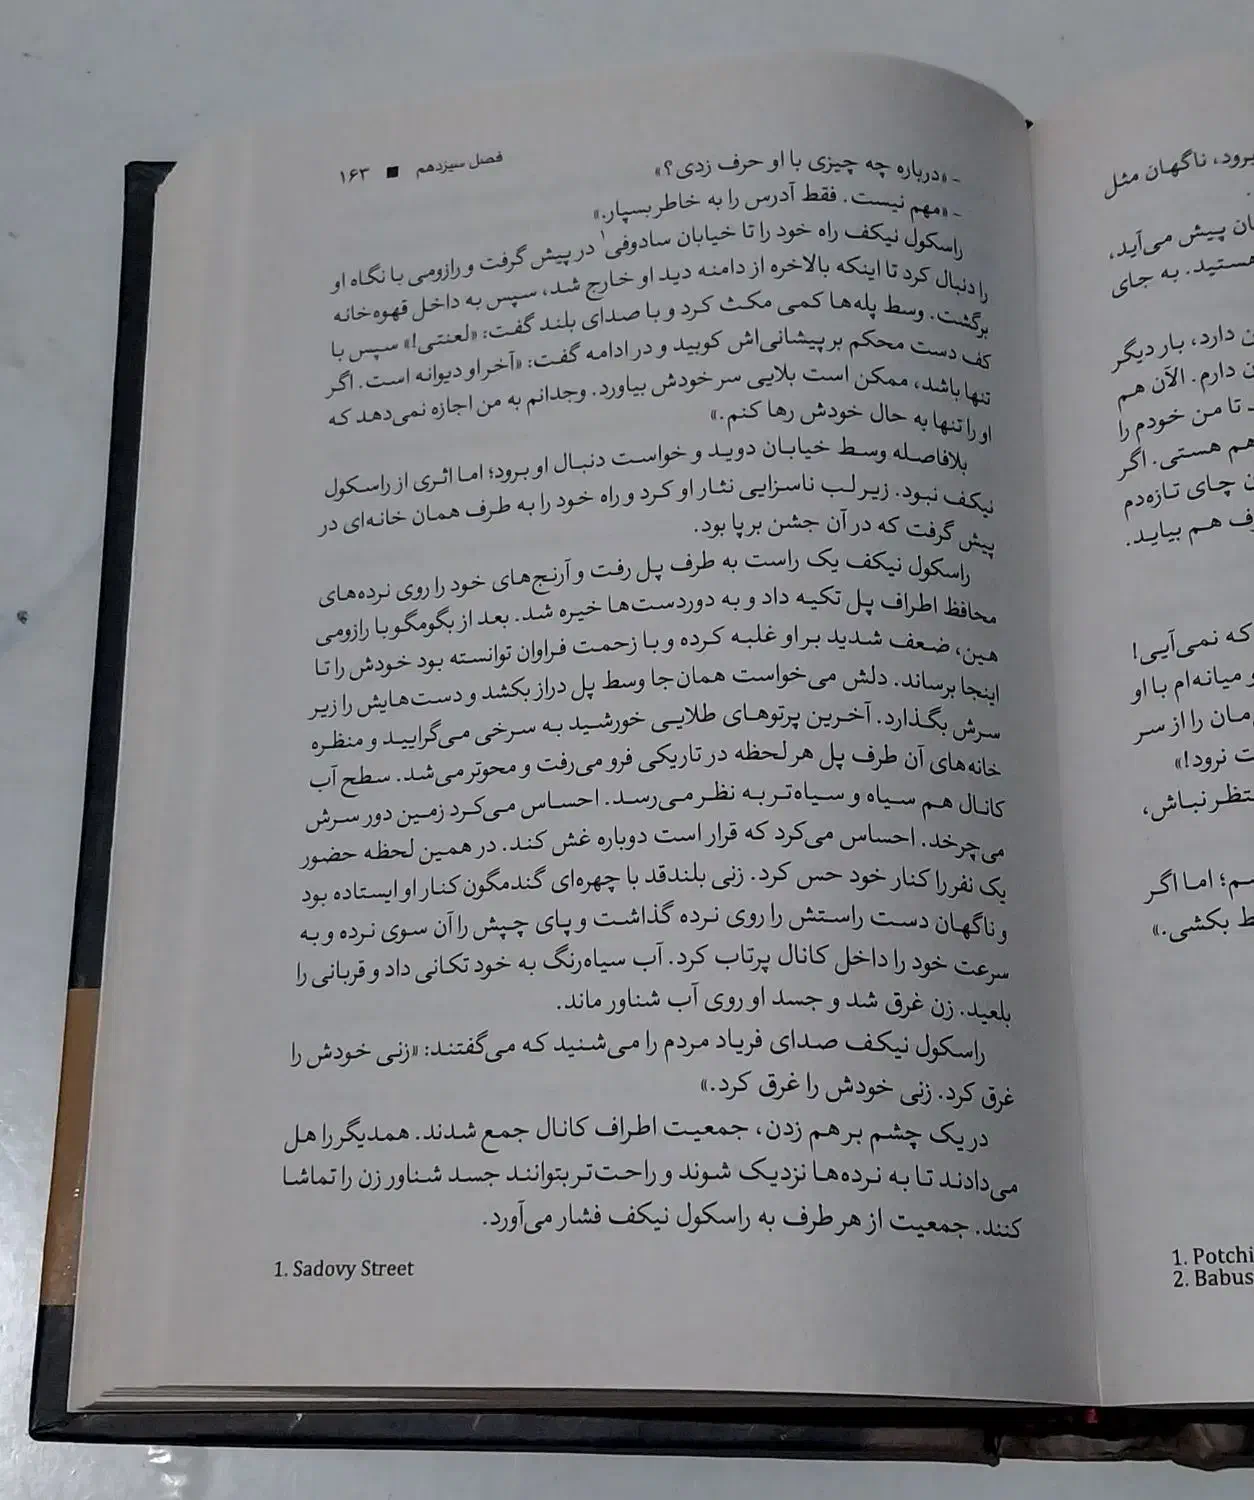 فصل سیزدهم ■ ۱۶۳
- «درباره چه چیزی با او حرف زدی؟»
- «مهم نیست. فقط آدرس را به خاطر بسپار.»
راسکول نیکف راه خود را تا خیابان سادوفی۱ در پیش گرفت و رازومی با نگاه او
را دنبال کرد تا اینکه بالاخره از دامنه دید او خارج شد، سپس به داخل قهوه‌خانه
برگشت. وسط پله‌ها کمی مکث کرد و با صدای بلند گفت: «لعنتی!» سپس با
کف دست محکم بر پیشانی‌اش کوبید و در ادامه گفت: «آخر او دیوانه است. اگر
تنها باشد، ممکن است بلایی سر خودش بیاورد. وجدانم به من اجازه نمی‌دهد که
او را تنها به حال خودش رها کنم.»
بلافاصله وسط خیابان دوید و خواست دنبال او برود؛ اما اثری از راسکول
نیکف نبود. زیر لب ناسزایی نثار او کرد و راه خود را به طرف همان خانه‌ای در
پیش گرفت که در آن جشن برپا بود.
راسکول نیکف یک راست به طرف پل رفت و آرنج‌های خود را روی نرده‌های
محافظ اطراف پل تکیه داد و به دوردست‌ها خیره شد. بعد از بگومگو با رازومی
هین، ضعف شدید بر او غلبه کرده و با زحمت فراوان توانسته بود خودش را تا
اینجا برساند. دلش می‌خواست همان‌جا وسط پل دراز بکشد و دست‌هایش را زیر
سرش بگذارد. آخرین پرتوهای طلایی خورشید به سرخی می‌گرایید و منظره
خانه‌های آن طرف پل هر لحظه در تاریکی فرو می‌رفت و محوتر می‌شد. سطح آب
کانال هم سیاه و سیاه‌تر به نظر می‌رسد. احساس می‌کرد زمین دور سرش
می‌چرخد. احساس می‌کرد که قرار است دوباره غش کند. در همین لحظه حضور
یک نفر را کنار خود حس کرد. زنی بلندقد با چهره‌ای گندمگون کنار او ایستاده بود
و ناگهان دست راستش را روی نرده گذاشت و پای چپش را آن سوی نرده و به
سرعت خود را داخل کانال پرتاب کرد. آب سیاه‌رنگ به خود تکانی داد و قربانی را
بلعید. زن غرق شد و جسد او روی آب شناور ماند.
راسکول نیکف صدای فریاد مردم را می‌شنید که می‌گفتند: «زنی خودش را
غرق کرد. زنی خودش را غرق کرد.»
در یک چشم بر هم زدن، جمعیت اطراف کانال جمع شدند. همدیگر را هل
می‌دادند تا به نرده‌ها نزدیک شوند و راحت‌تر بتوانند جسد شناور زن را تماشا
کنند. جمعیت از هر طرف به راسکول نیکف فشار می‌آورد.
1. Sadovy Street
برود، ناگهان مثل
پیش می‌آید،
هستید. به جای
دارد، بار دیگر
دارم. الآن هم
تا من خودم را
هم هستی. اگر
چای تازه‌دم
هم بیاید.
که نمی‌آیی!
میانه‌ام با او
را از سر
نرود!»
نباش،
اما اگر
بکشی.»
1. Potchi
2. Babus